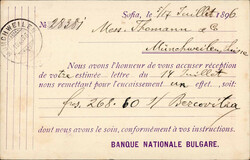 Sofia, 5/17 Juillet 1896
No 28381
Mess. Thomann & Co
Münchweilen, Suisse
Nous avons l'honneur de vous accuser réception
de votre estimée lettre du 14 Juillet
nous remettant pour l'encaissement un effet. soit
frs. 268.60 s/ Bercovitza
dont nous avons le soin, conformément à vos instructions.
BANQUE NATIONALE BULGARE.